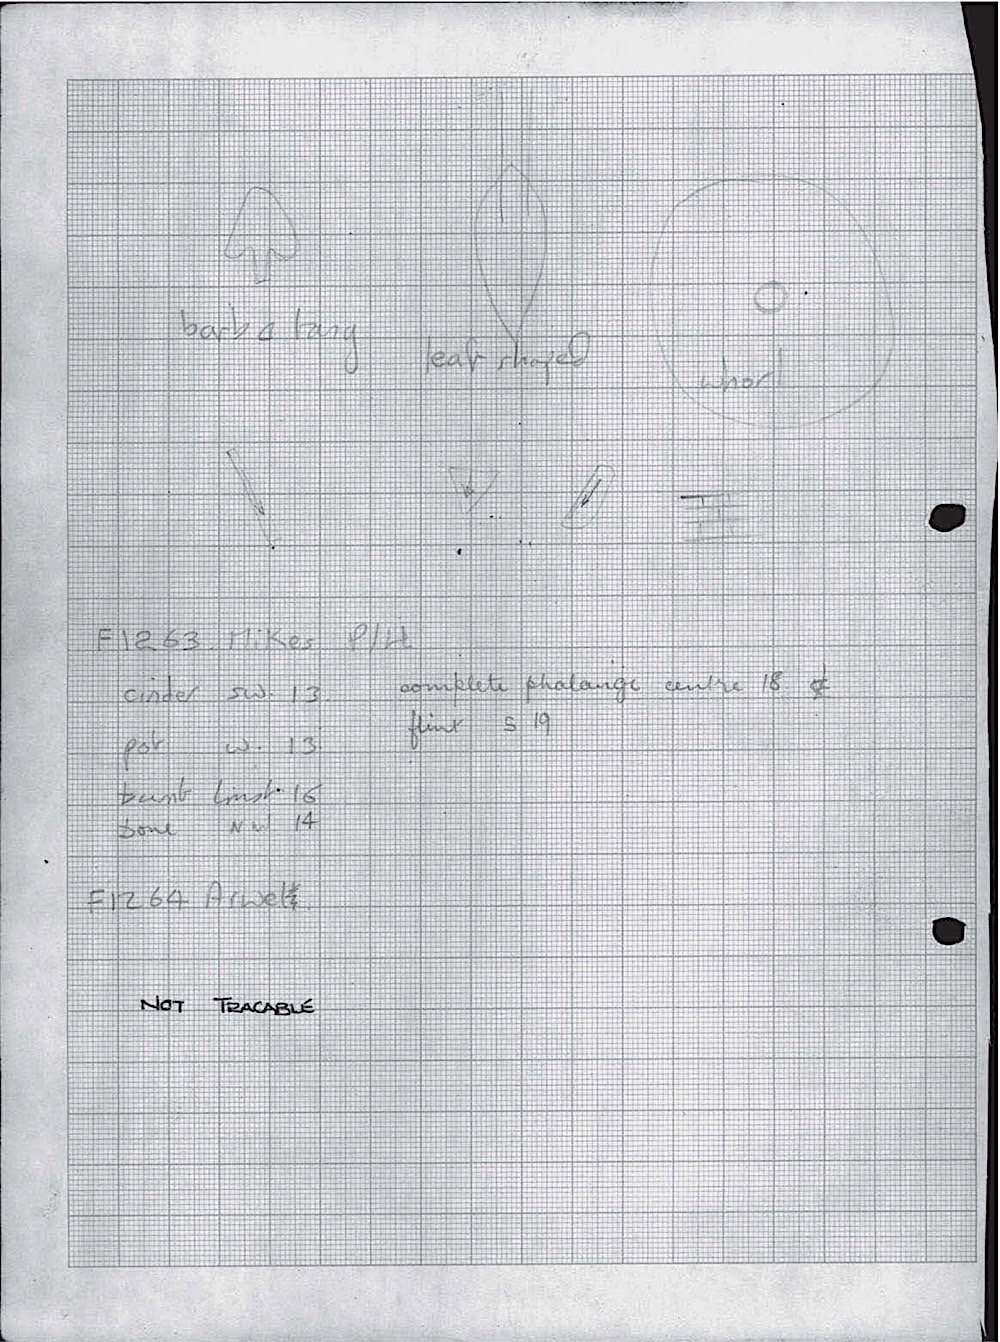 barb & tang
leaf shaped
whorl
F1263. Mikes P/H
cinder sw. 13.
complete phalange centre 18. ¢
flint S 19
pot w. 13.
burnt lmst. 16
bone NW 14
F1264 Arwel
NOT TRACABLE